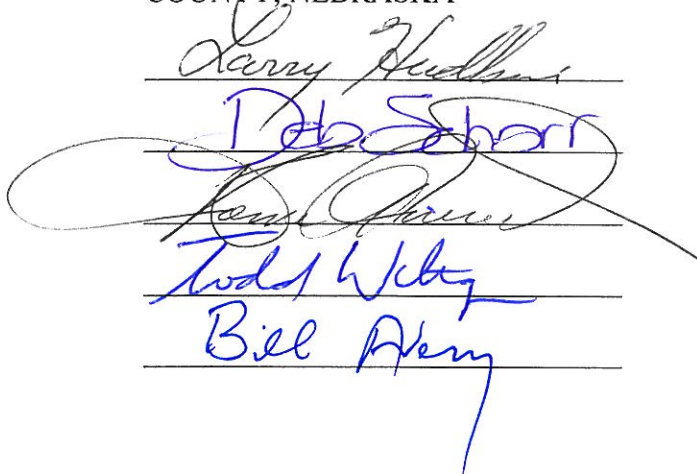 COUNTY, NEBRASKA
Larry Hudkins
Deb Schorr
Todd Wiltgen
Bill Avery